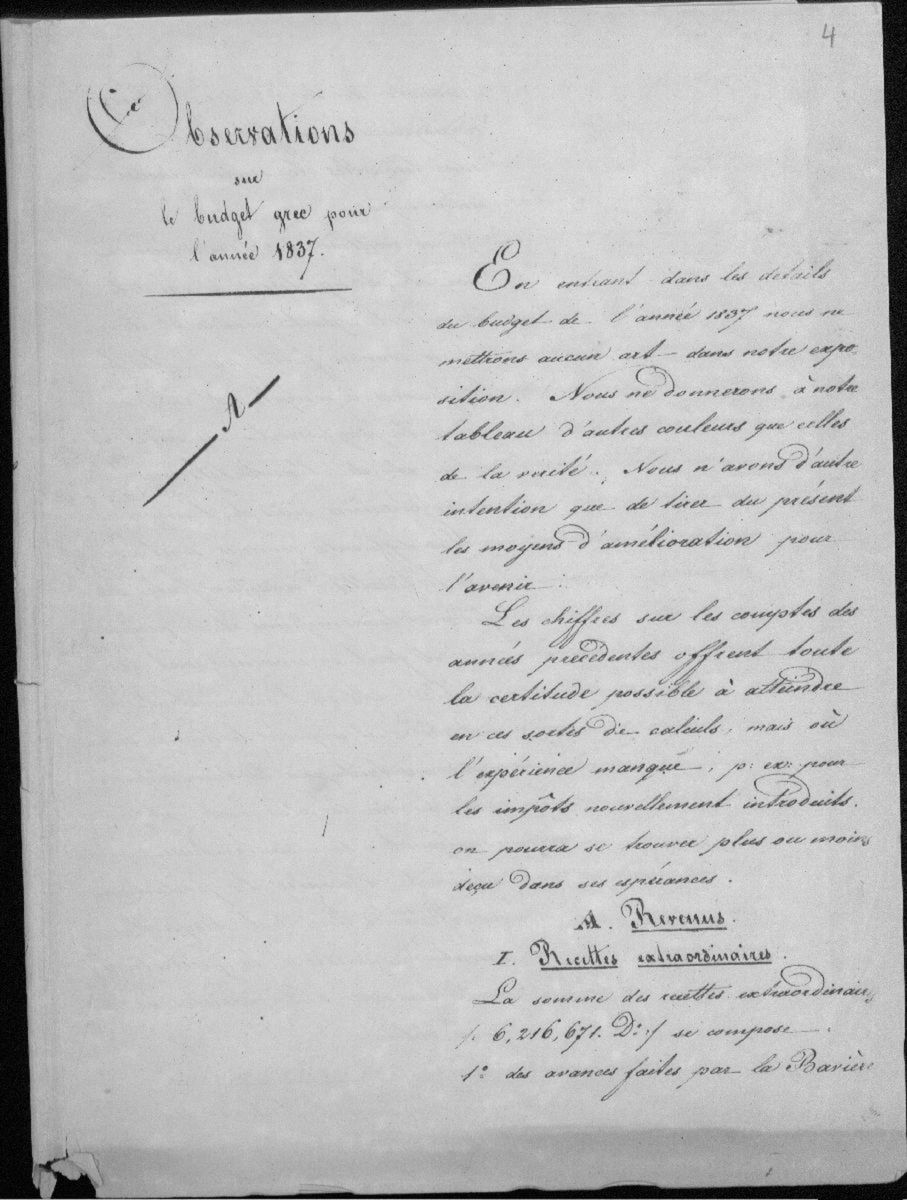 4
Observations
sur
le budget grec pour
l'année 1837.
A
En entrant dans les details
du budget de l'année 1837 nous ne
mettrons aucun art dans notre expo-
sition. Nous ne donnerons à notre
tableau d'autres couleurs que celles
de la verité. Nous n'avons d'autre
intention que de tirer du présent
les moyens d'amélioration pour
l'avenir.
Les chiffres sur les comptes des
années precédentes offrent toute
la certitude possible à atteindre
en ces sortes de calculs, mais où
l'expérience manque, p: ex: pour
les impôts nouvellement introduits.
on pourra se trouver plus ou moins
deçu dans ses espérances.
A. Revenus.
I. Recettes extraordinaires.
La somme des recettes extraordinaires
/: 6,216,671. Dr :/ se compose
1º des avances faites par la Bavière